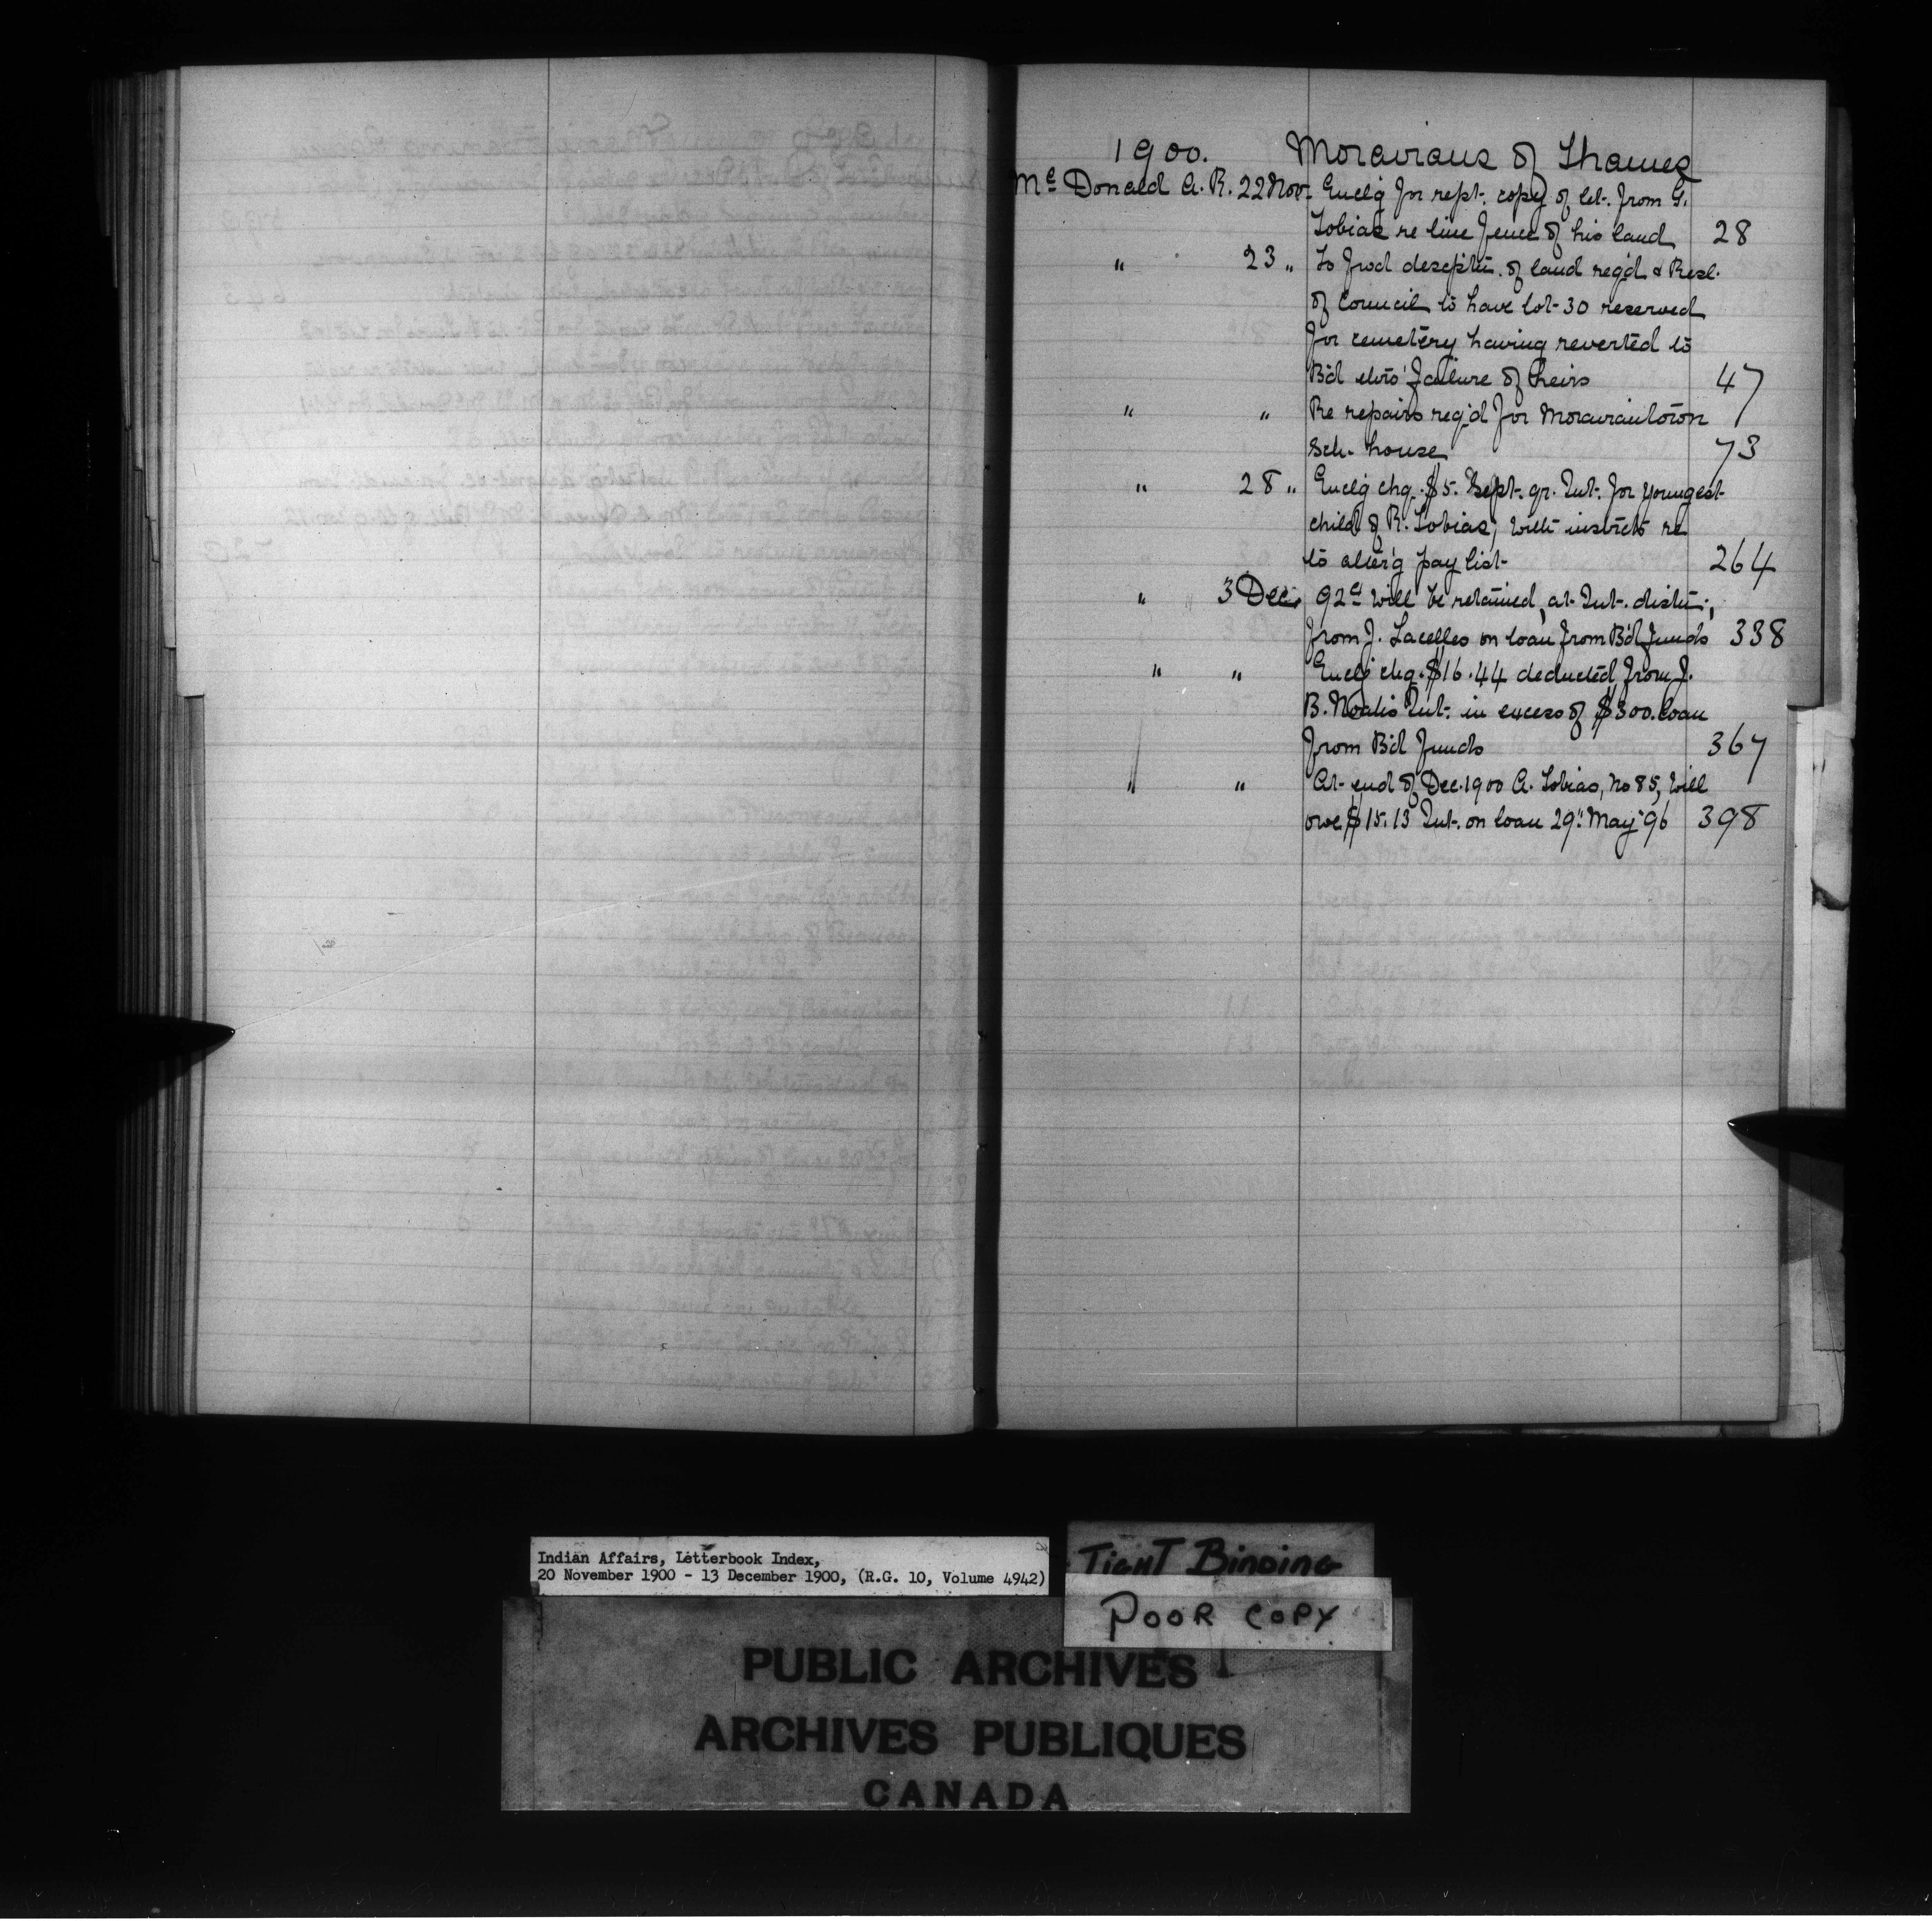 1900. Moravians of Thames
Mc Donald A. R. 22 Nov. Enclg for rept. copy of let. from G.
Tobias re line fence of his land 28
" 23 " To fwd descptn. of land reqd & Resl.
of Council to have lot 30 reserved
for cemetery having reverted to
Bd thro' failure of heirs 47
" " Re repairs req'd for Moraviantown
sch. house 73
" 28 " Enclg chq. $5. Sept. qr. Int. for youngest
child of R. Tobias, with instrcts re
to alter'g pay list 264
" " 3 Dec. 92c will be retained, at Int. distn.,
from J. Lacelles on loan from Bd funds 338
" " Enclg chq. $16.44 deducted from J.
B. Noah's Int. in excess of $300. loan
from Bd funds 367
" " At end of Dec. 1900 A. Tobias, No 85, will
owe $15.13 Int. on loan 29" May '96 398
Indian Affairs, Letterbook Index,
20 November 1900 - 13 December 1900, (R.G. 10, Volume 4942)
TIGHT BINDING
POOR COPY
PUBLIC ARCHIVES
ARCHIVES PUBLIQUES
CANADA